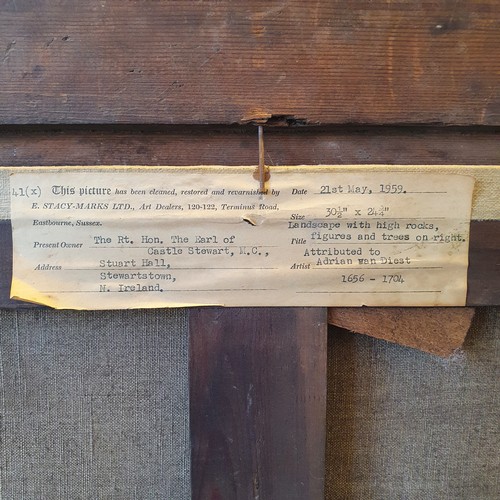 41(x) This picture has been cleaned, restored and revarnished by
E. STACY-MARKS LTD., Art Dealers, 120-122, Terminus Road,
Eastbourne, Sussex.
Present Owner The Rt. Hon. The Earl of
Castle Stewart, M.C.,
Address Stuart Hall,
Stewartstown,
N. Ireland.
Date 21st May, 1959.
Size 30½" x 24¾"
Landscape with high rocks,
Title figures and trees on right.
Attributed to
Artist Adrian van Diest
1656 - 1704